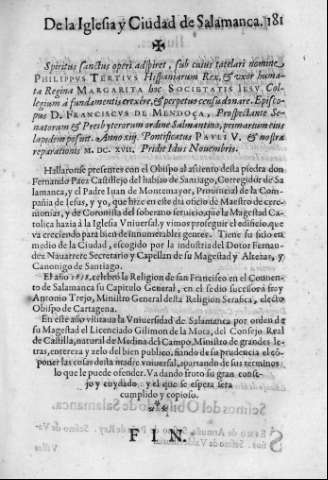 De la Iglesia y Ciudad de Salamanca. 181
✠
Spiritus sanctus operi adspiret, sub cuius tutelari nomine
PHILIPPVS TERTIVS Hispaniarum Rex, & vxor huma-
ta Regina MARGARITA hoc SOCIETATIS IESV Col-
legium à fundamentis erexêre, & perpetuo censu donare. Episco-
pus D. FRANCISCVS DE MENDOÇA, Prospectante Se-
natorum & Presbyterorum ordine Salmantino, primarium eius
lapidem posuit. Anno xiij. Pontificatus PAVLI V. & nostræ
reparationis M. DC. XVII. Pridie Idus Nouembris.
Hallaronse presentes con el Obispo al assiento desta piedra don
Fernando Paez Castillejo del habito de Santiago, Corregidor de Sa
lamanca, y el Padre Iuan de Montemayor, Prouincial de la Com-
pañia de Iesus, y yo, que hize en este dia oficio de Maestro de cere-
monias, y de Coronista del soberano seruicio, que la Magestad Ca-
tolica hazia à la Iglesia Vniuersal, y vimos proseguir el edificio, que
va creciendo para bien de innumerables gentes. Tiene su sitio en
medio de la Ciudad, escogido por la industria del Dotor Fernan-
dez Nauarrete Secretario y Capellan de su Magestad y Altezas, y
Canonigo de Santiago.
El año celebrò la Religion de san Francisco en el Conuen-
to de Salamanca su Capitulo General, en el sedio sucessor a fray
Antonio Trejo, Ministro General desta Religion Serafica, electo
Obispo de Cartagena.
En este año visitaua la Vniuersidad de Salamanca por orden de
su Magestad el Licenciado Gilimon de la Mota, del Consejo Real
de Castilla, natural de Medina del Campo, Ministro de grandes le-
tras, entereza y zelo del bien publico, fiando de su prudencia el cõ-
poner las cosas desta madre vniuersal, apartando de sus terminos
lo que le puede ofender. Va dando fruto su gran conse-
jo y cuydado, y el que se espera serà
cumplido y copioso.
FIN.